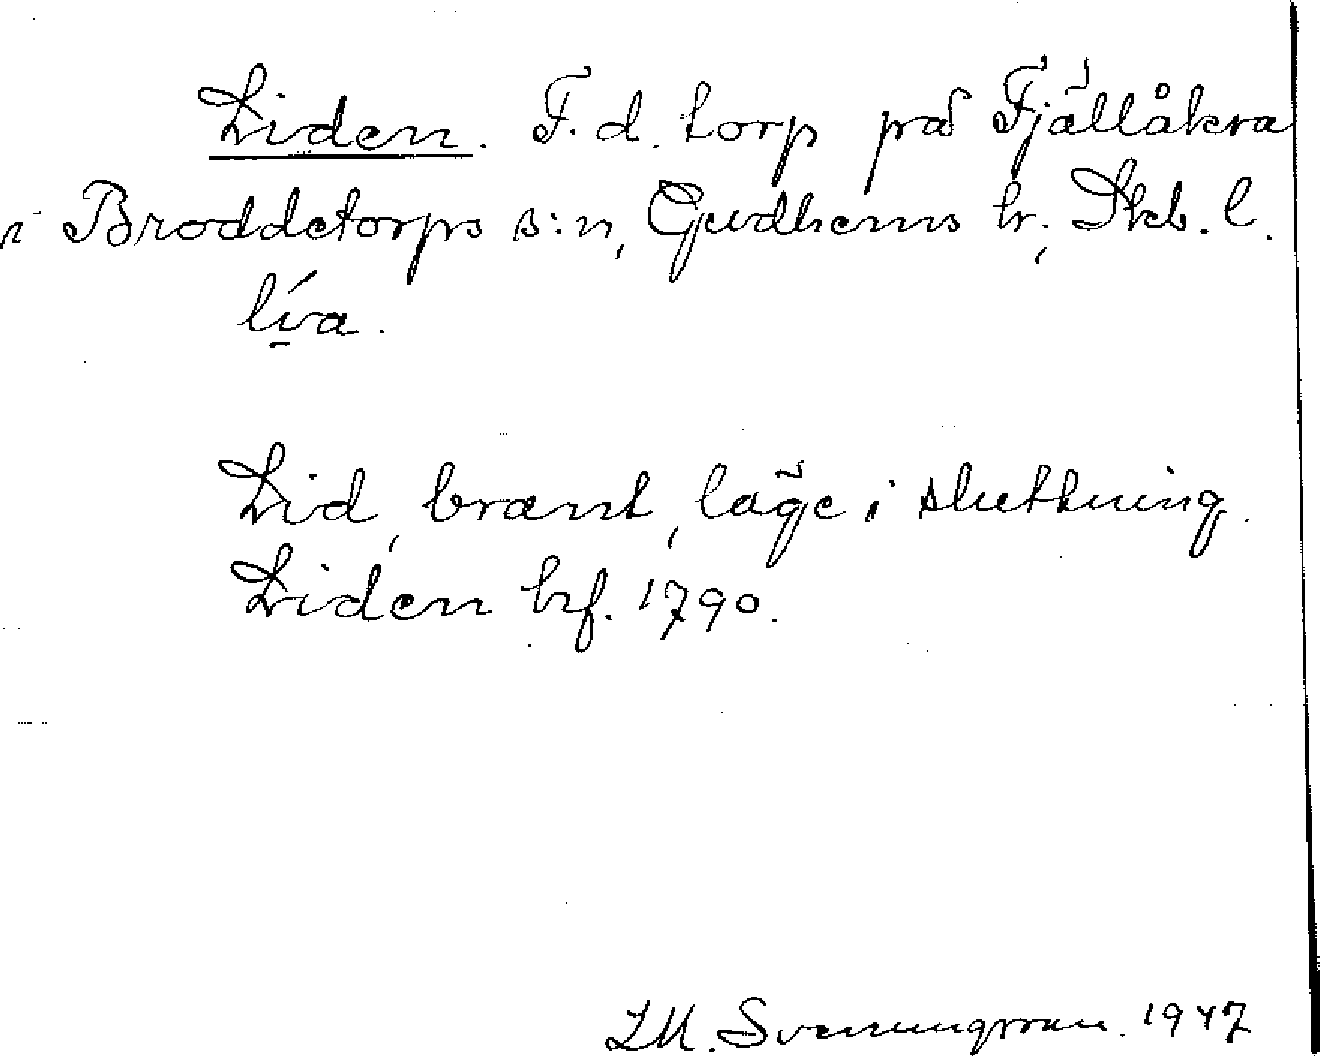 Liden. F. d. torp på Fjällåkra
i Broddetorps s:n, Gudhems hr, Skb. l.
lía.
Lid, brant, läge i sluttning.
Liden hf. 1790.
LM. Svenungsson. 1947